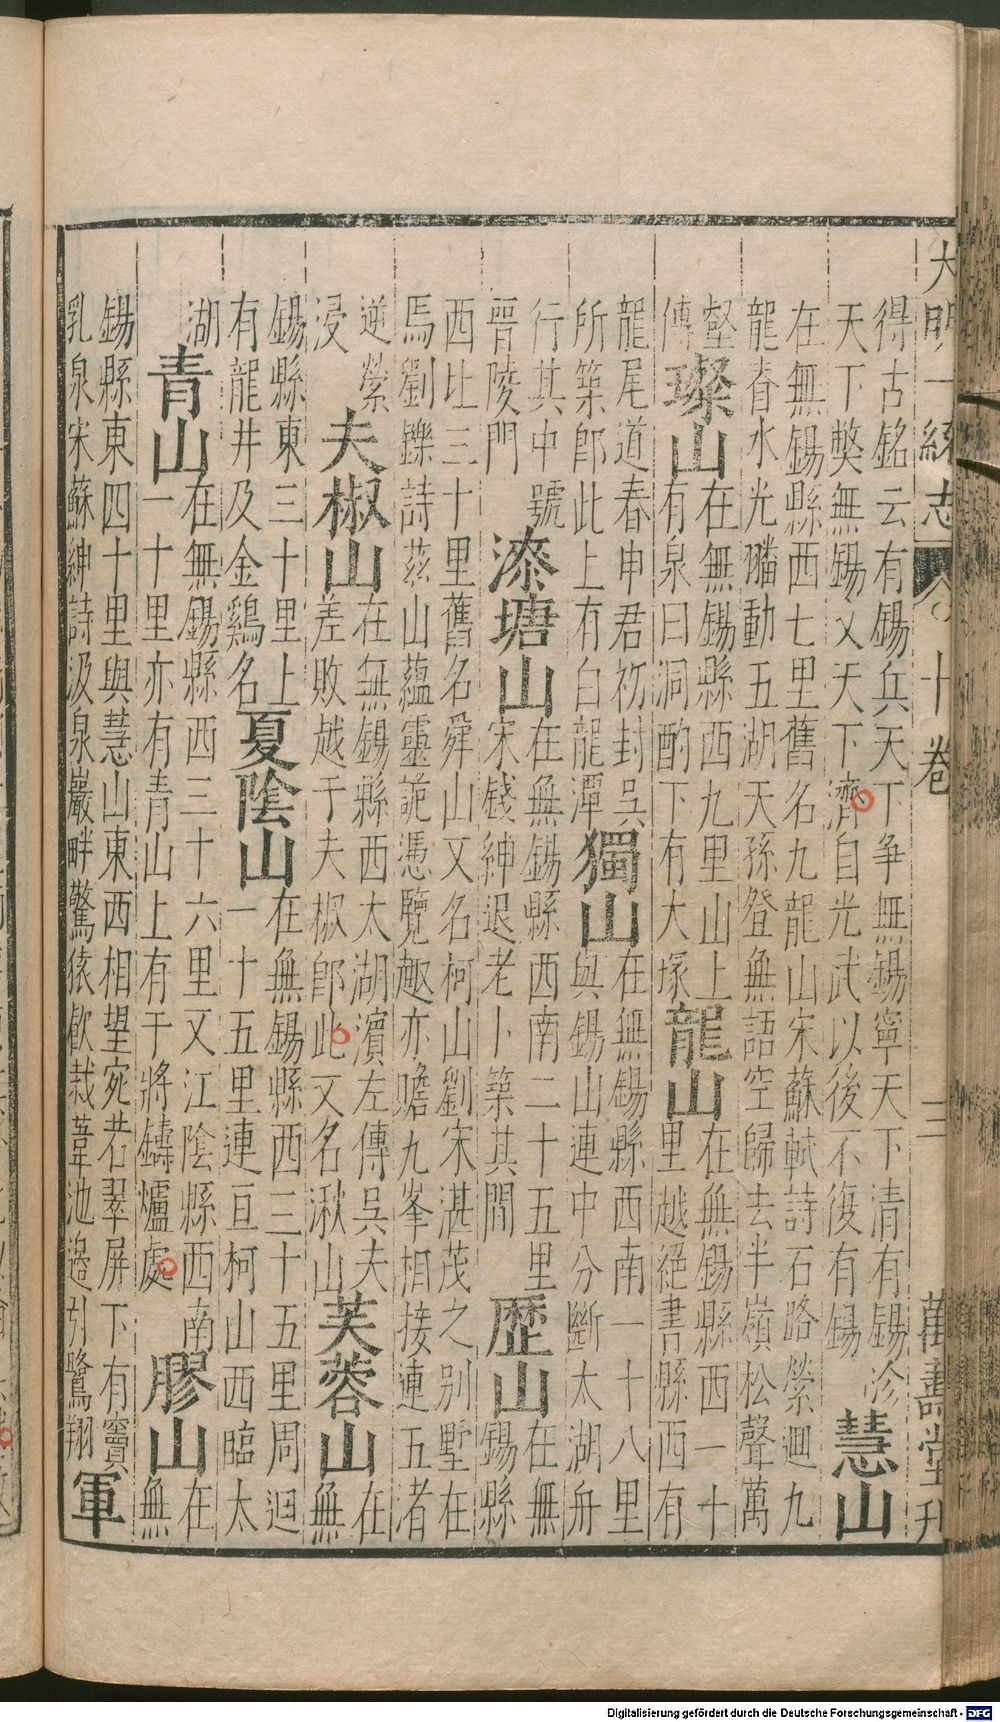 大明一統志 卷之十卷 三 萬壽堂刊
得古銘云有錫兵天下争無錫寧天下清有錫沴
天下弊無錫乂天下濟自光武以後不復有錫
慧山
在無錫縣西七里舊名九龍山宋蘇軾詩石路縈迴九
龍脊水光翻動五湖天孫登無語空歸去半嶺松聲萬
壑
傳
璨山
在無錫縣西九里山上
有泉曰洞酌下有大塚
龍山
在無錫縣西一十
里越絕書縣西有
龍尾道春申君初封吳
所築卽此上有白龍潭
獨山
在無錫縣西南一十八里
與錫山連中分斷太湖舟
行其中號
晉陵門
漆塘山
在無錫縣西南二十五里
宋錢紳退老卜築其間
歷山
在無
錫縣
西北三十里舊名舜山又名柯山劉宋湛茂之别墅在
焉劉鑠詩茲山蘊靈詭憑覽趣亦贍九峯相接連五者
逆縈
浸
夫椒山
在無錫縣西太湖濵左傳吳夫
差敗越于夫椒卽此又名湫山
芙蓉山
在
無
錫縣東三十里上
有龍井及金鷄名
夏陰山
在無錫縣西三十五里周迴
一十五里連亘柯山西臨太
湖
青山
在無錫縣西三十六里又江陰縣西南
一十里亦有青山上有干將鑄爐處
膠山
在
無
錫縣東四十里與慧山東西相望宛若翠屏下有竇
乳泉宋蘇紳詩汲泉巖畔驚猿飲栽葦池邊引鷺翔
軍
Digitalisierung gefördert durch die Deutsche Forschungsgemeinschaft - DFG